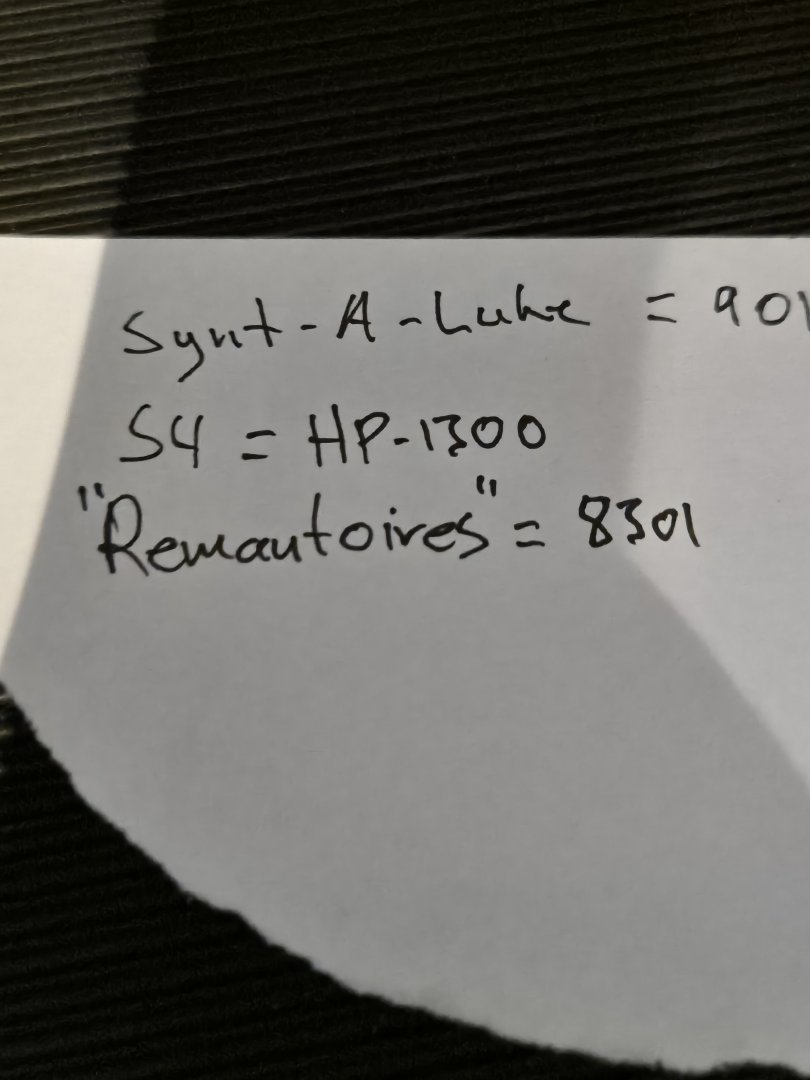 Synt-A-Luhe = 901
S4 = HP-1300
"Remautoires" = 8301